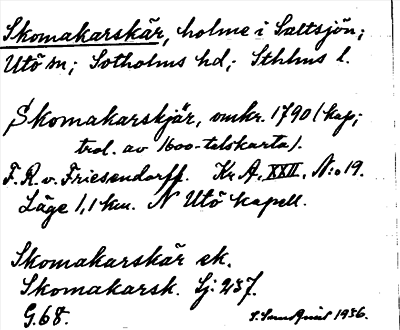 Skomakarskär, holme i Saltsjön;
Utö sn; Sotholms hd; Sthlms l.
Skomakarskjär, omkr. 1790 (kop;
trol. av 1600-talskarta).
F. R. v. Friesendorff. Kr. A. XXII, N:o 19.
Läge 1,1 km. N Utö kapell.
Skomakarskär ek.
Skomakarsk. Sj: 237.
G.68.
1936.